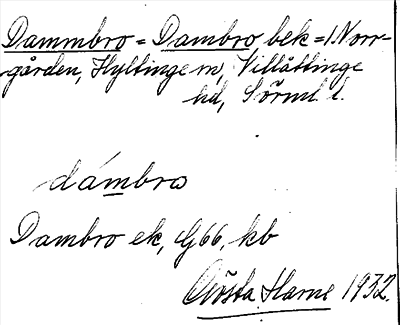 Dammbro = Dambro bek = 1 Norr-
gården, Hyltinge sn, Villåttinge
hd, Sörml. l.
dámbro
Dambro ek, G66, kb
Gösta Harne 1932.